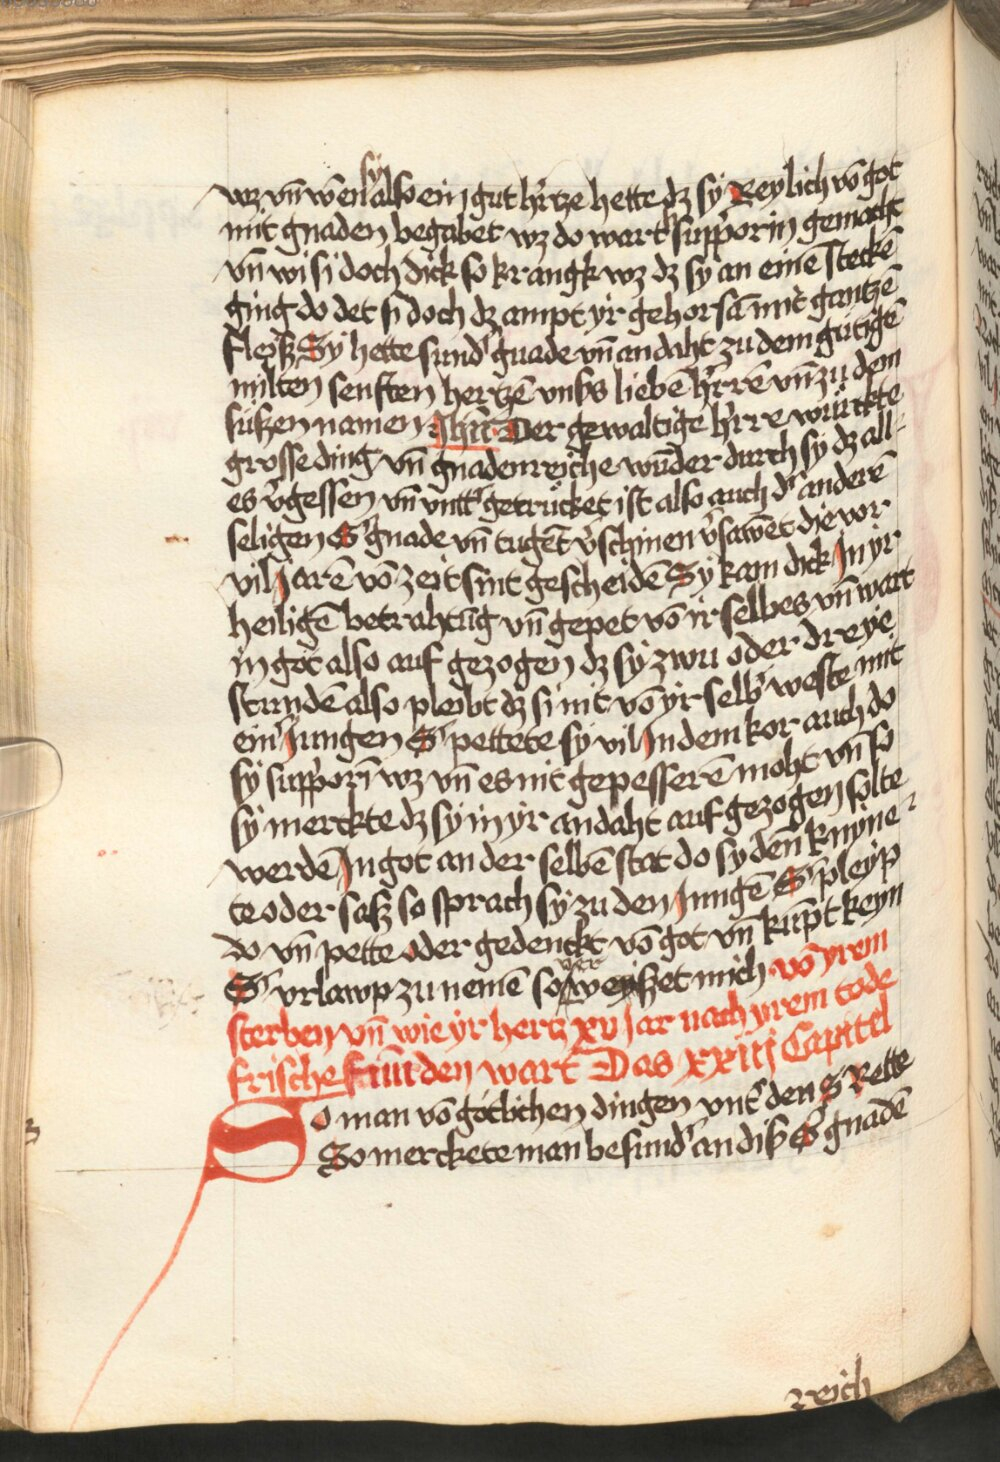 wz vn̄ wēn sy also ein gut hr̄tze hette dz sy Reylich vō got
mit gnaden begabet wz do wart s supp̄orin gemacht
vn̄ wi si doch dick so krangk wz dz sy an einē steckē
ging do det si doch dz ampt yr gehorsā mit gantzē
fleysz Sy hette sund' gnade vn̄ andaht zu dem gutigē
milten senften hertzē vnsrs̄ liebē hr̄rē vn̄ zu dem
süszen namen Jhū Der gewaltige hr̄re würckte
grosse ding vn̄ gnadenreiche wūder durch sy dz all-
es v'gessen vn̄ vntt' getrücket ist also auch d' anderē
seligen S' gnade vn̄ tugēt v'schinen v'sawēt die vor
vil Jarē vō zeit sint gescheidē Sy kam dick Jn yr
heiligē betrahtūg vn̄ gepet vō ir selbes vn̄ wart
in got also auf gezogen dz sy zwu oder dreye
stundē also pleibt dz si nit vō yr selb' weste mit
ein' Jungen S' pettete sy vil Jn dem kor auch do
sy supp̄orī wz vn̄ es nit gepesserē moht vn̄ so
sy merckte dz sy in yr andaht auf gezogen solte
werdē Jn got an der selbē stat do sy deñ knyne-
te oder sasz so sprach sy zu den Jungē S' pleyp
do vn̄ pette oder gedenckt vō got vn̄ kūpt keyn
S' vrlawp zu nemē so ver weyszet mich vō yrem
sterben vn̄ wie yr hertz xv Jar nach yrem tode
frische fūden wart Das xxiij Capitel
So man vō gotlichen dingen vnt' den S Rette
So merckete man besund' an dis' S' gnadē
reich